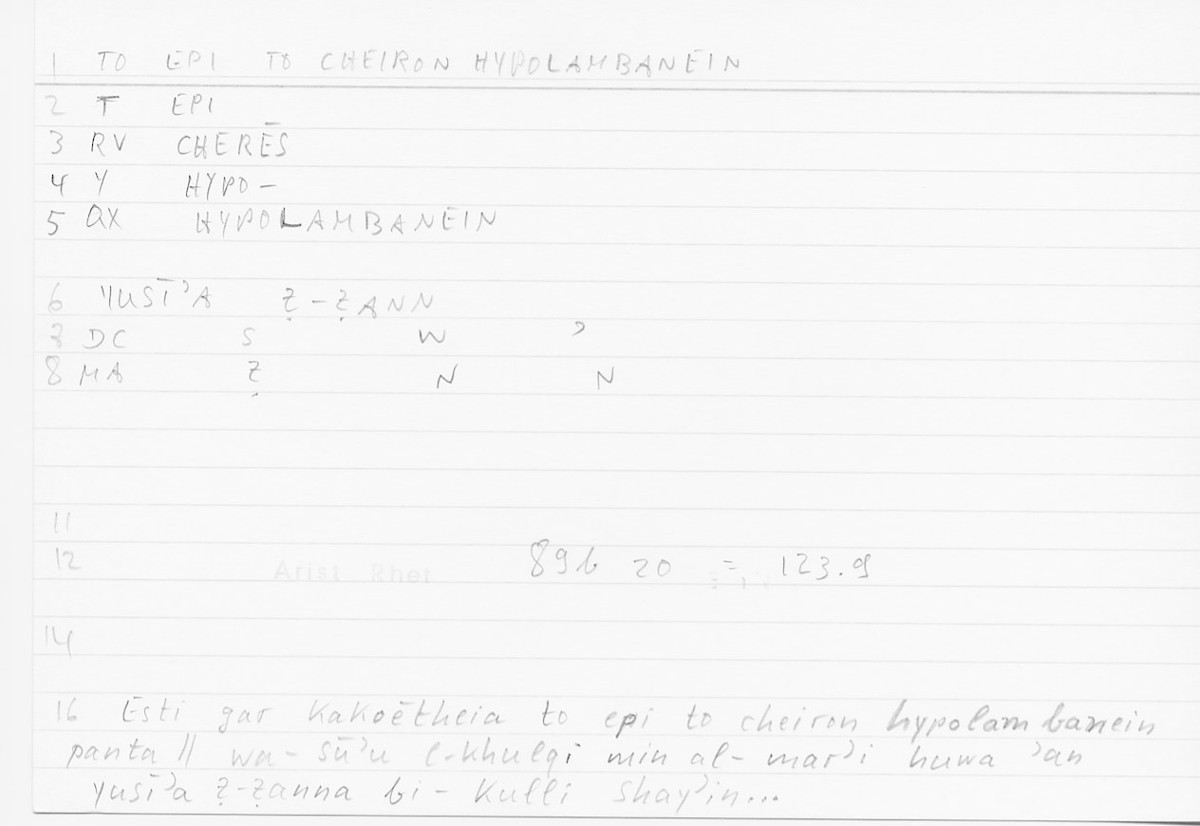 1 TO EPI TO CHEIRON HYPOLAMBANEIN
2 T EPI
3 RV CHERĒS
4 Y HYPO-
5 QX HYPOLAMBANEIN
6 YUSĪʾA Ẓ-ẒANN
7 DC S W ʾ
8 MA Ẓ N N
11
12 Arist Rhet 89b 20 = 123.9
14
16 Esti gar Kakoētheia to epi to cheiron hypolambanein
panta || wa-sūʾu l-khulqi min al-marʾi huwa ʾan
yusīʾa ẓ-ẓanna bi-kulli shayʾin...